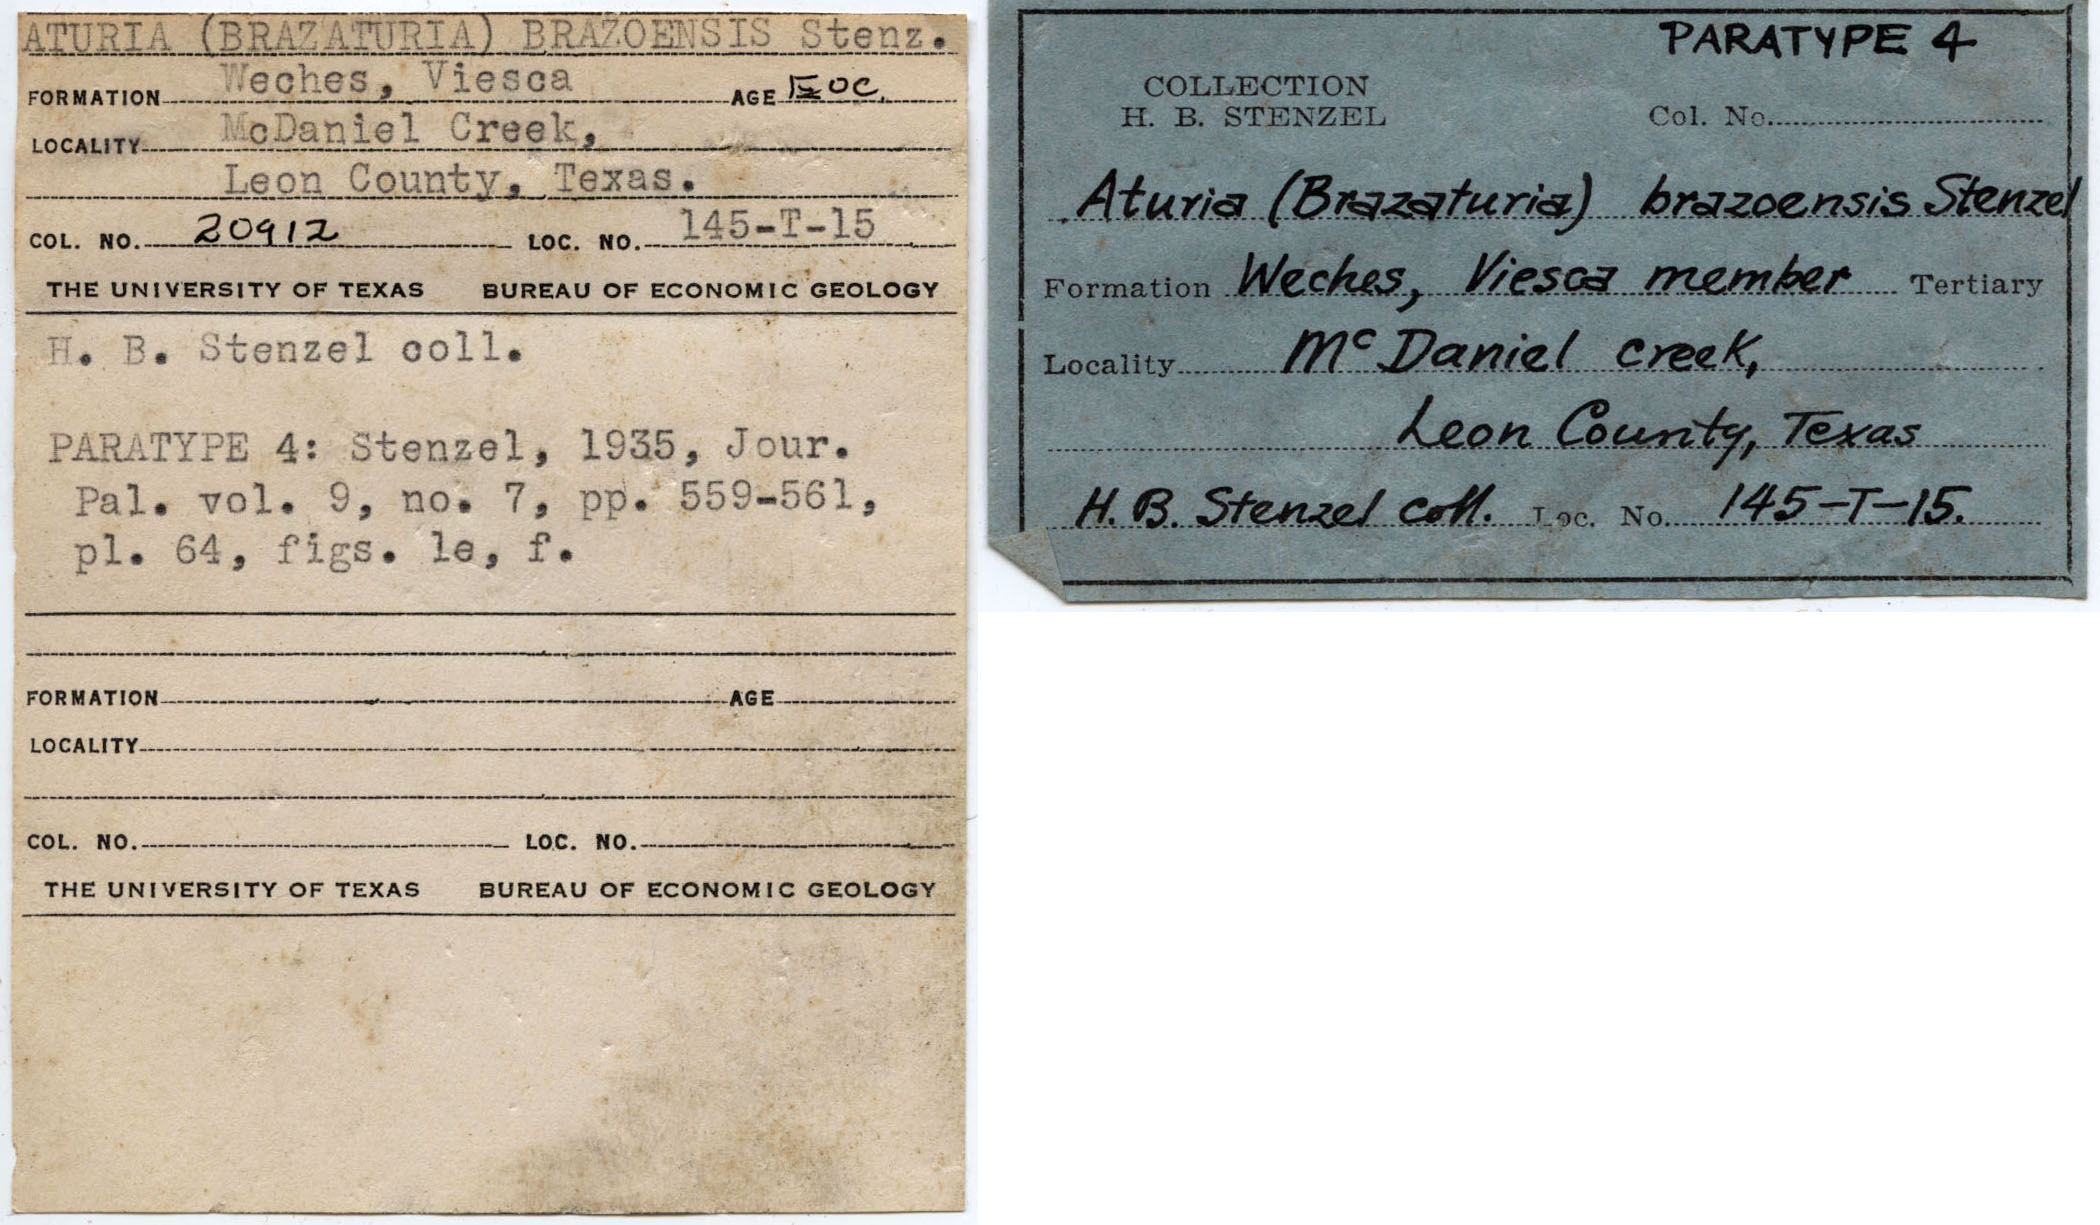 ATURIA (BRAZATURIA) BRAZOENSIS Stenz.
FORMATION Weches, Viesca AGE EOC.
LOCALITY McDaniel Creek,
Leon County, Texas.
COL. NO. 20912 LOC. NO. 145-T-15
THE UNIVERSITY OF TEXAS BUREAU OF ECONOMIC GEOLOGY
H. B. Stenzel coll.
PARATYPE 4: Stenzel, 1935, Jour.
Pal. vol. 9, no. 7, pp. 559-561,
pl. 64, figs. 1e, f.
FORMATION AGE
LOCALITY
COL. NO. LOC. NO.
THE UNIVERSITY OF TEXAS BUREAU OF ECONOMIC GEOLOGY
PARATYPE 4
COLLECTION
H. B. STENZEL Col. No.
Aturia (Brazaturia) brazoensis Stenzel
Formation Weches, Viesca member Tertiary
Locality McDaniel creek,
Leon County, Texas
H. B. Stenzel coll. Loc. No. 145-T-15.